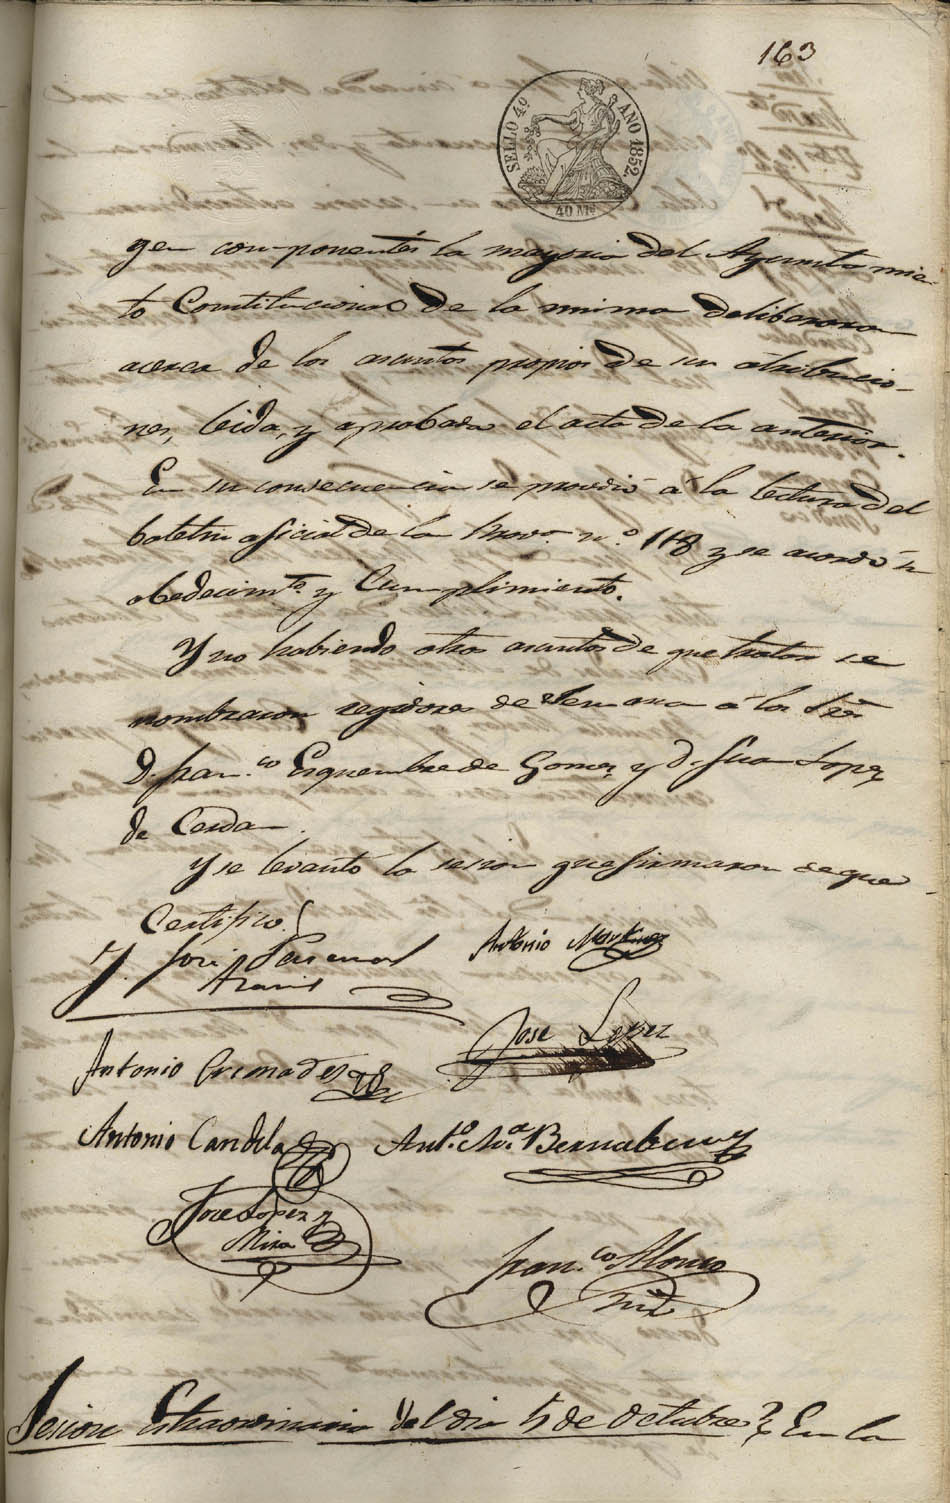 163
SELLO 4º AÑO 1852.
40 Ms
gen componentes la mayoria del Ayuntamien-
to Constitucional de la misma deliberaron
acerca de los asuntos propios de su atribucio-
nes, leida, y aprobada el acta de la anterior.
En su consecuencia se procedió á la lectura del
boletin oficial de la Prova. nº. 118 y se acordó su
obedecimto. y Cumplimiento.
Y no habiendo otros asuntos de que tratar se
nombraron regidores de Semana á los Sres
D. Fran.co Esquembre de Gomez y D. Juan Lopez
de Cerdan.
Y se levantó la sesion que firmaron de que
Certifico.
J. José Pascual
Antonio Martinez
José Lopez
Antonio Cremades
Antonio Candela
Antº. Mª. Bernabeu
Jose Lopez y
Mira
Fran.co Alonso
Sesion Estraordinaria del dia 5 de Octubre En la